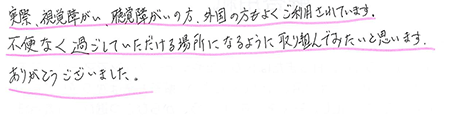 実際、視覚障がい、聴覚障がいの方、外国の方もよくご利用されています。
不便なく過ごしていただける場所になるように取り組んでみたいと思います。
ありがとうございました。